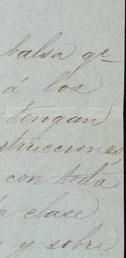 balsa qe
á los
tengan
strucciones,
con toda
clase
y sobre